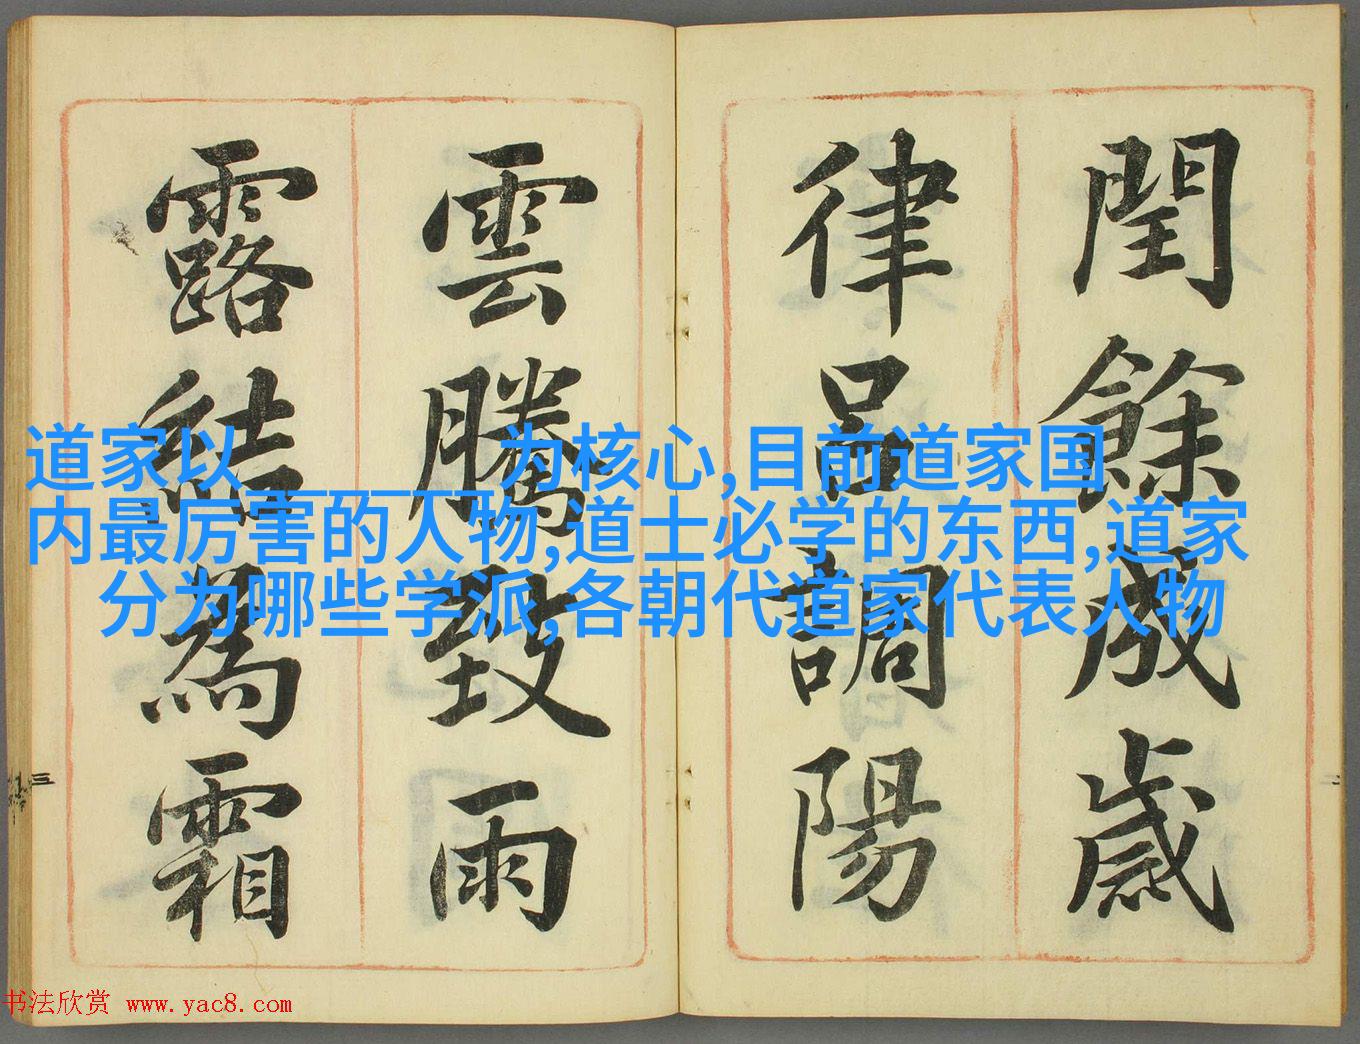 閏餘成歲
律呂調陽
雲騰致雨
露結為霜
道家以______为核心,目前道家国
内最厉害的人物,道士必学的东西,道家
分为哪些学派,各朝代道家代表人物
三
二
书法欣赏 www.yac8.com